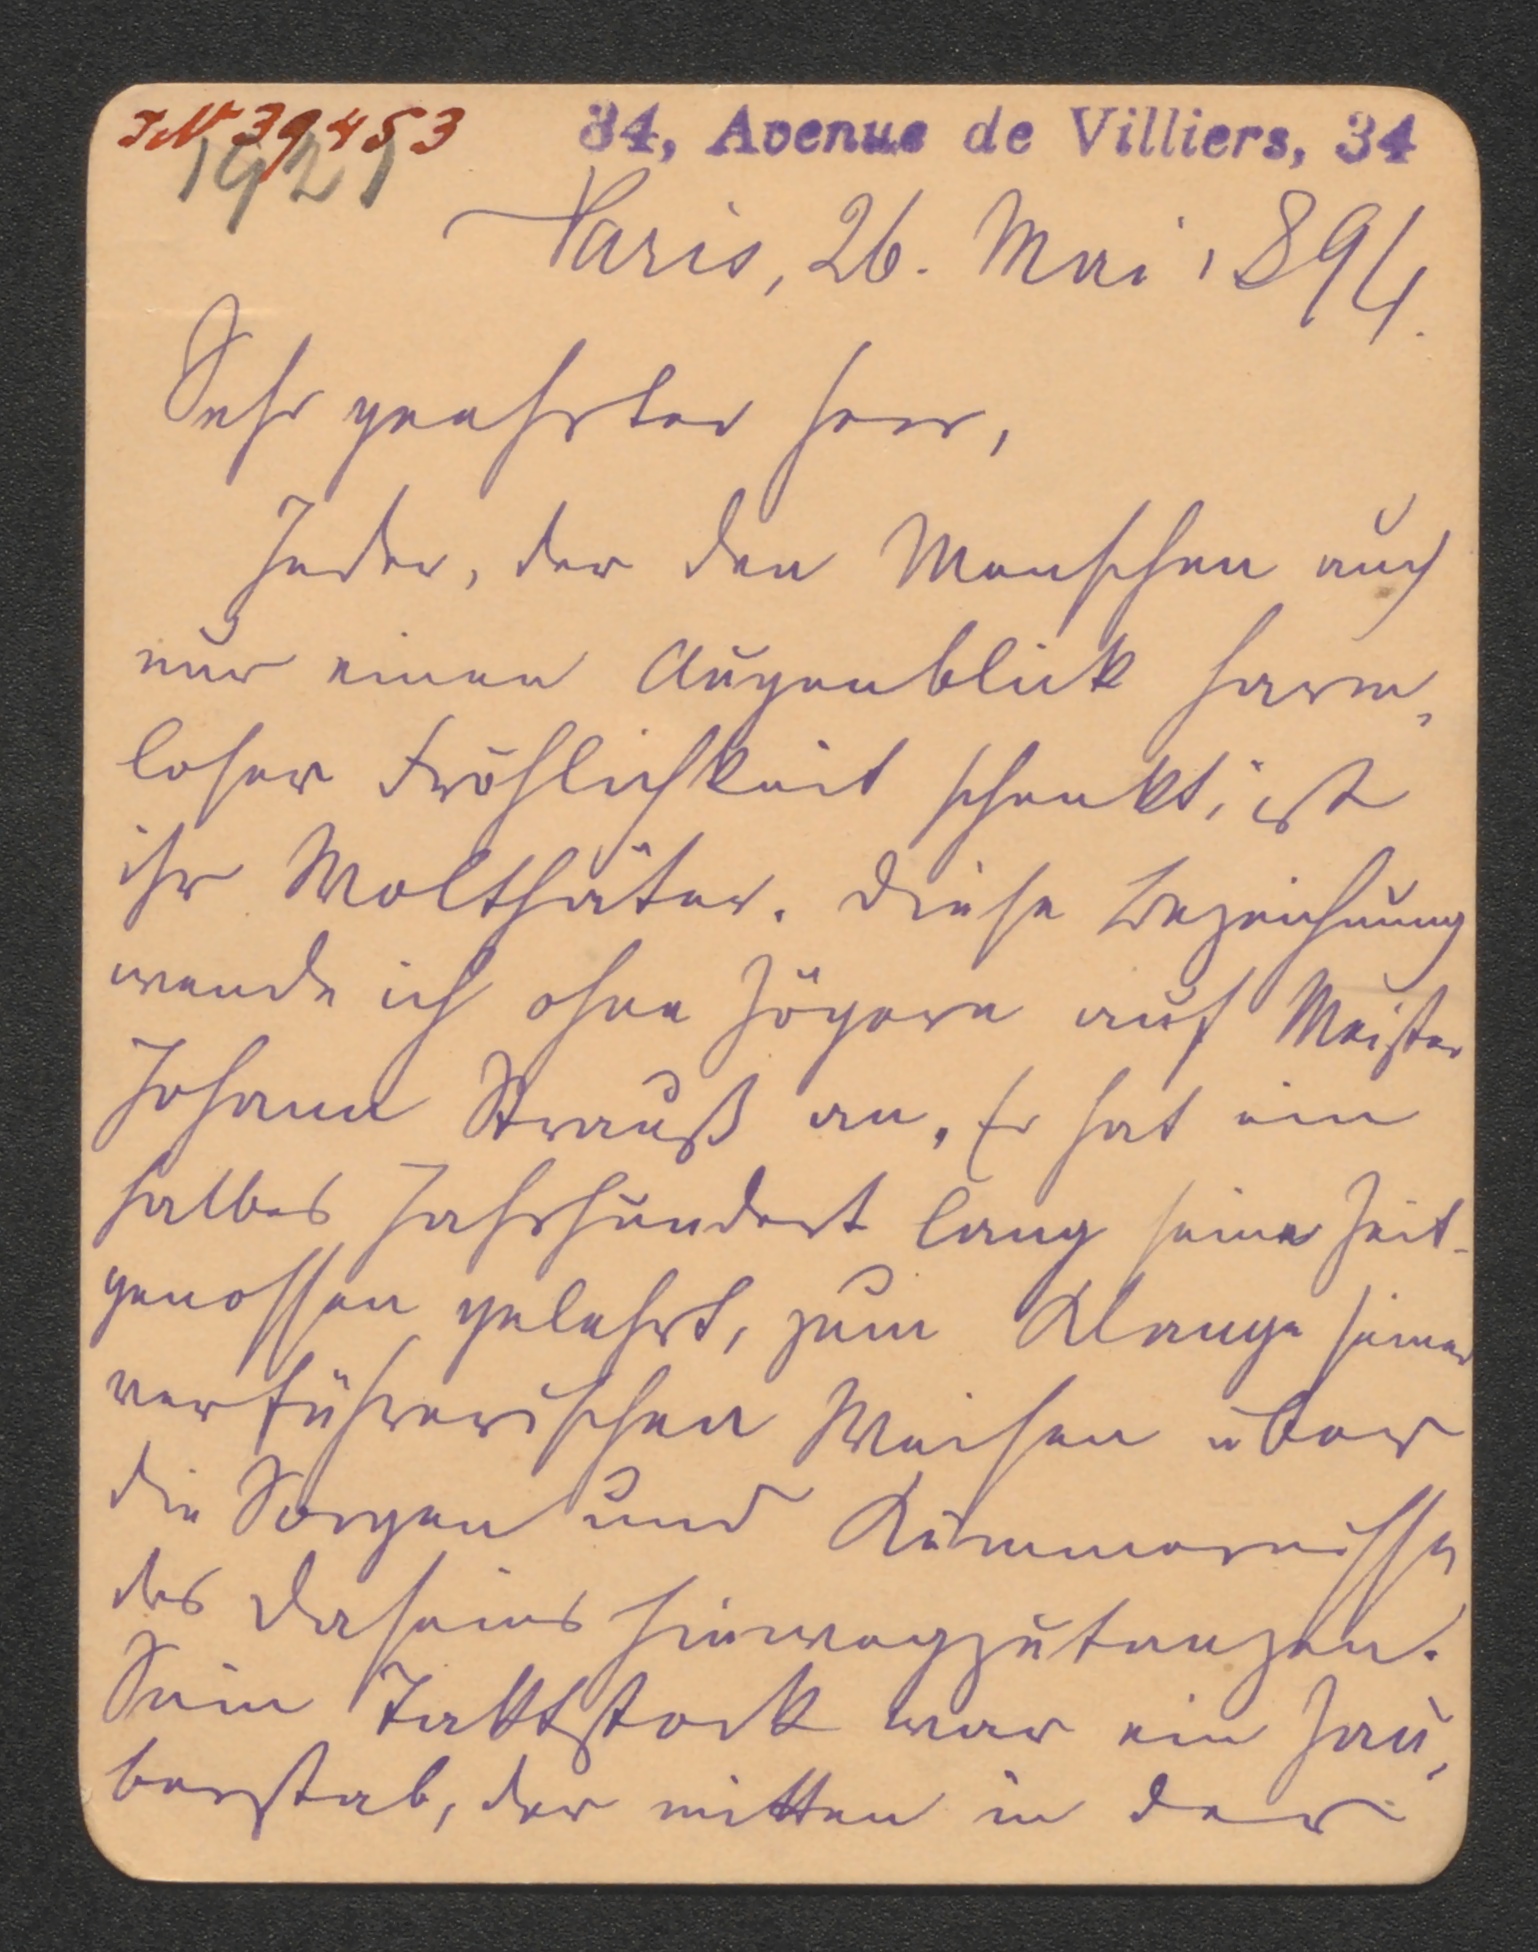 IN 39453
1921
34, Avenue de Villiers, 34
Paris, 26. Mai 1894.
Sehr geehrter Herr,
Jeder, der den Menschen auch
nur einen Augenblick harm-
loser Fröhlichkeit schenkt, ist
ihr Wolthäter. Diese Bezeichnung
wende ich ohne Zögern auf Meister
Johann Strauß an. Er hat ein
halbes Jahrhundert lang seine Zeit-
genossen gelehrt, zum Klange seiner
verführerischen Weisen über
die Sorgen und Kümmernisse
des Daseins hinwegzutanzen.
Sein Taktstock war ein Zau-
berstab, der mitten in der